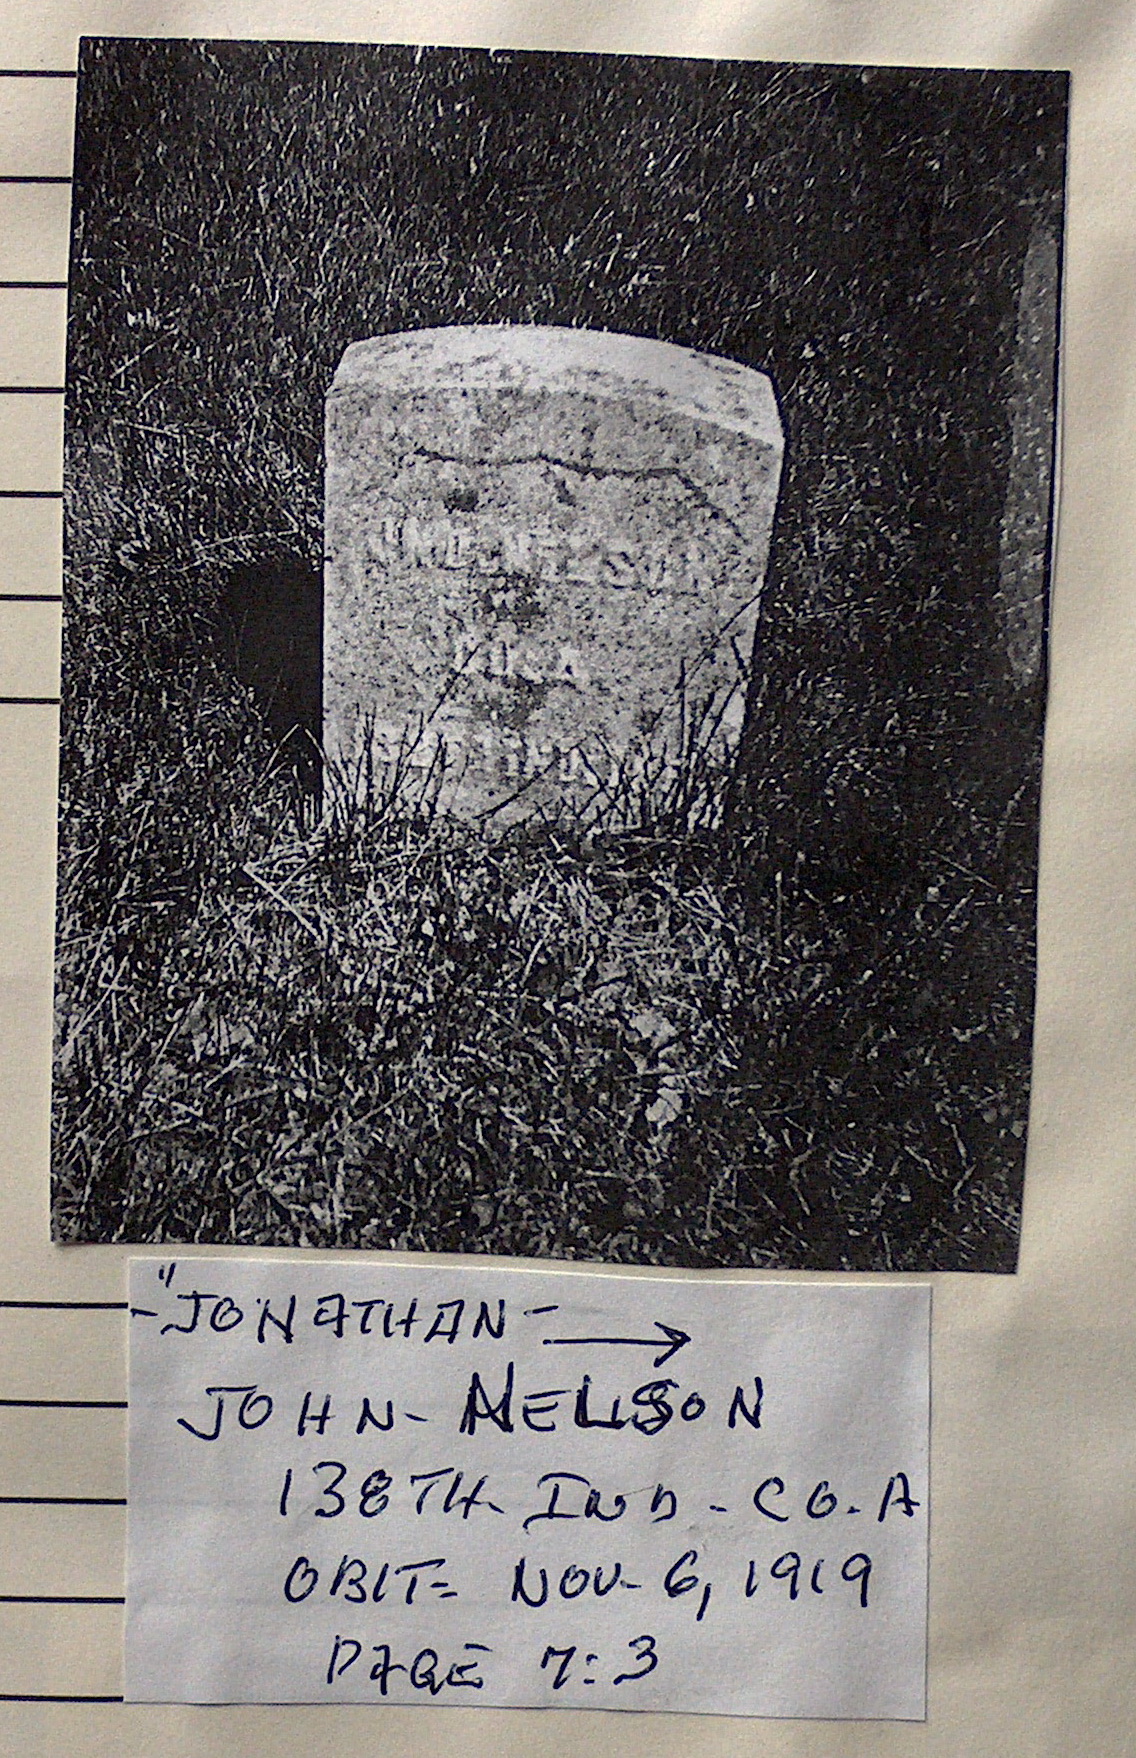 NELSON
-"JONATHAN-
JOHN- NELSON
138TH. IND - CO. A
OBIT= NOV- 6, 1919
PAGE 7:3